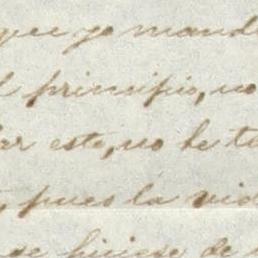 que yo mand
l principio, no
ar esto, no he te
, pues la vid
se hiciese de